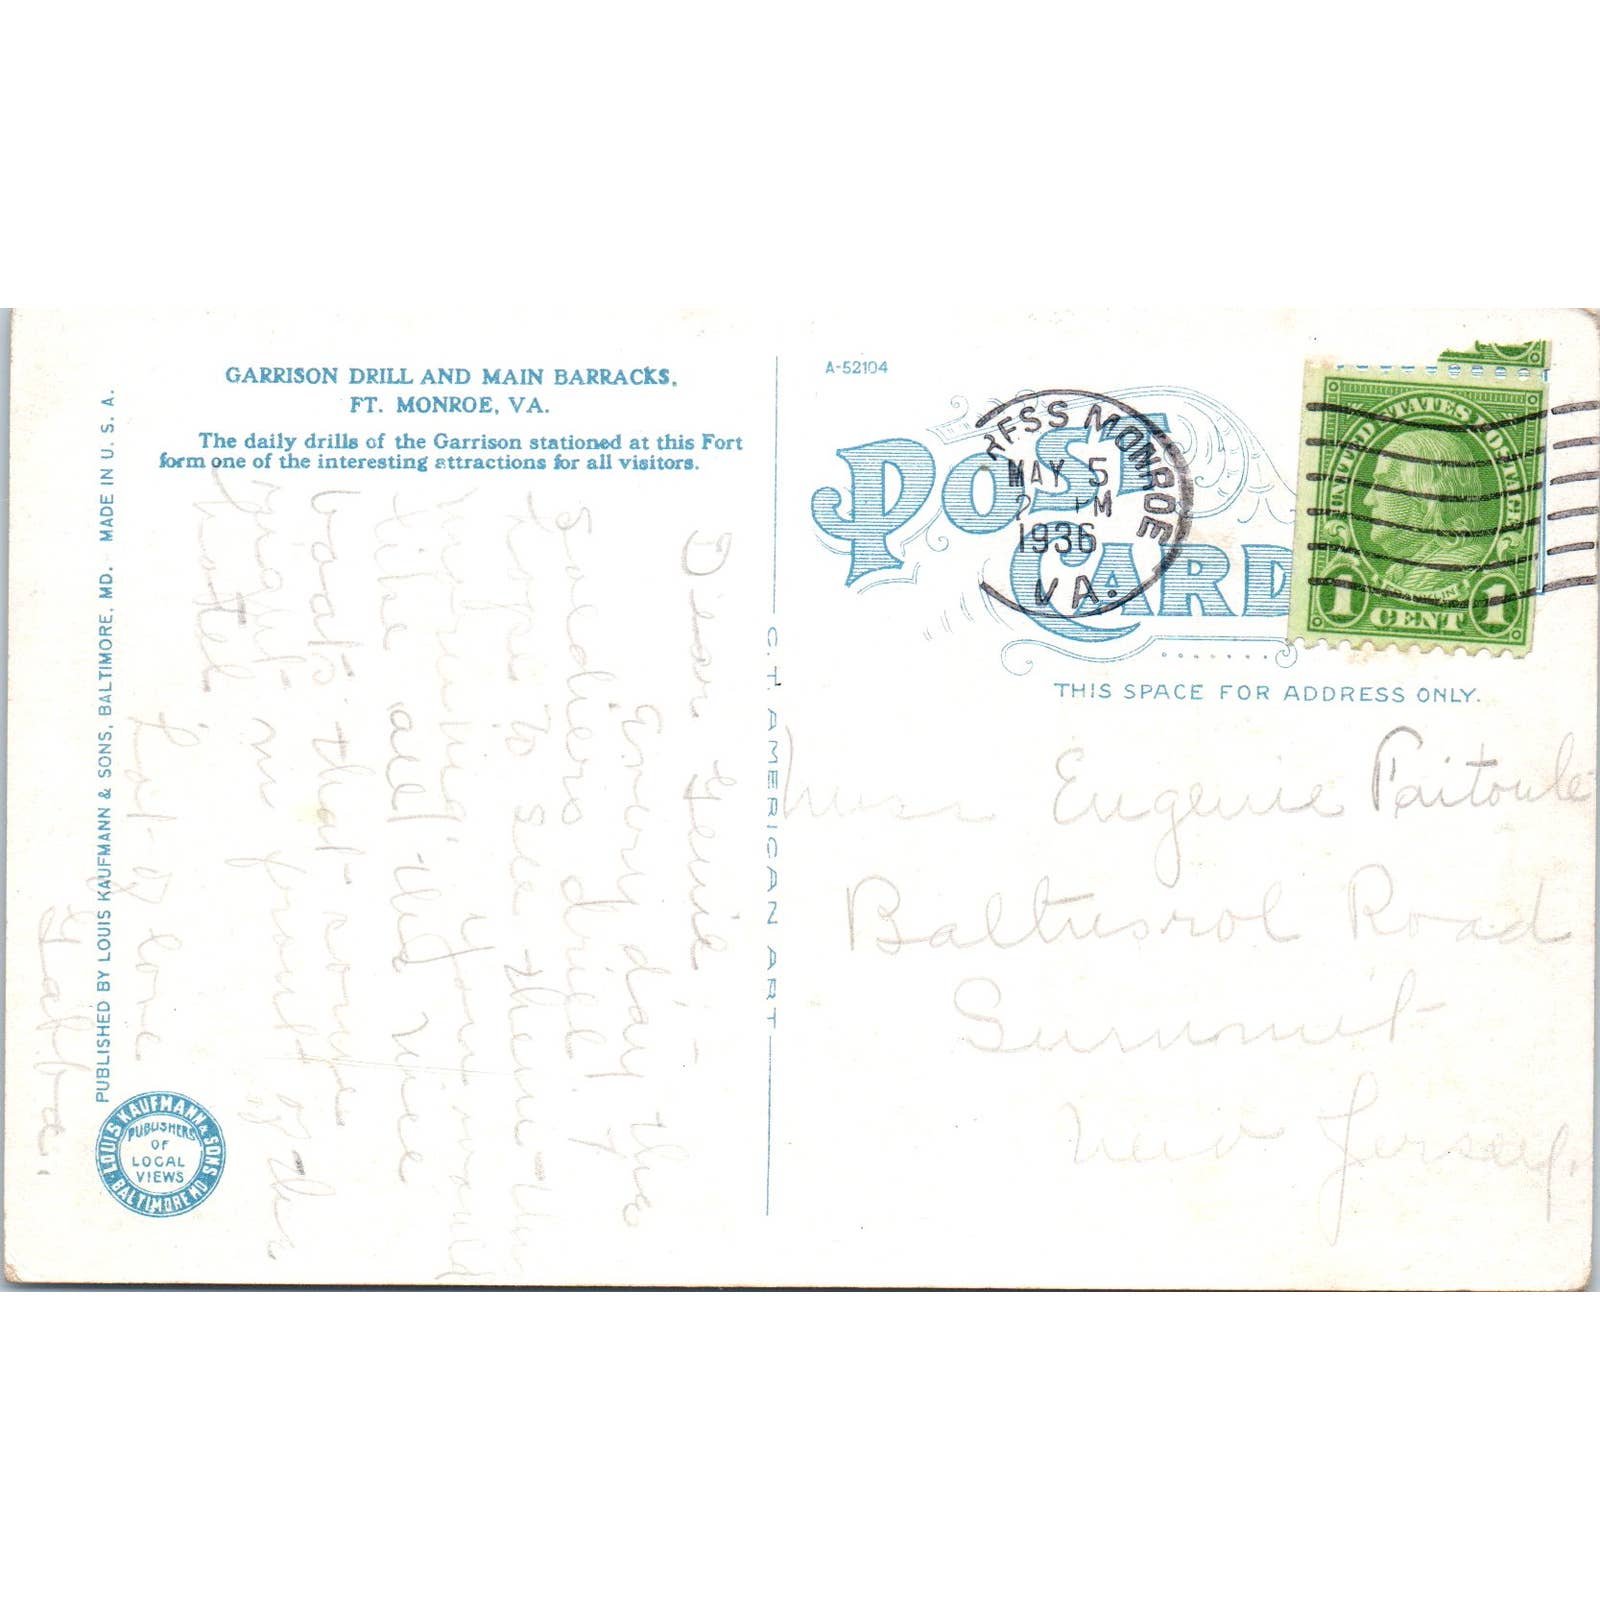 GARRISON DRILL AND MAIN BARRACKS,
FT. MONROE, VA.
The daily drills of the Garrison stationed at this Fort
form one of the interesting attractions for all visitors.
PUBLISHED BY LOUIS KAUFMANN & SONS, BALTIMORE, MD. MADE IN U. S. A.
LOUIS KAUFMANN & SONS
BALTIMORE MD
PUBLISHERS
OF
LOCAL
VIEWS
Dear Genie -
Every day the
soldiers drill I
hope to see them
interesting. You would
like all the nice
boats that come
right in front of the
hotel
Lots of love
C. T. AMERICAN ART
A-52104
POST
CARD
RESS MONROE
MAY 5
PM
1936
VA.
UNITED STATES POSTAGE
FRANKLIN
1 CENT 1
THIS SPACE FOR ADDRESS ONLY.
Miss Eugenie
Baltusrol Road
Summit
New Jersey.